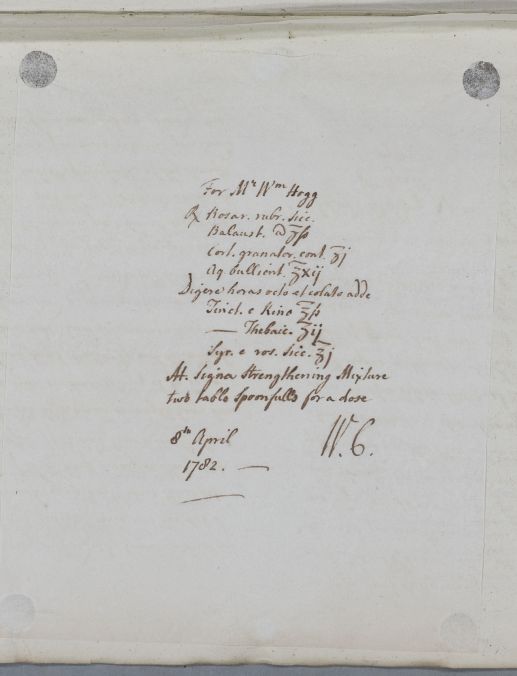 For Mr Wm Hogg
℞ Rosar. rubr. sicc.
Balaust. a ʒß
Cort. granator. cont. ʒj
Aq bullient ℥xij
Digere horas octo et colato adde
Tinct. e Kino ℥ß
— Thebaic. ʒij
Syr. e ros. sicc. ℥j
M. Signa Strengthening Mixture
two table spoonfulls for a dose
8th April W. C.
1782. —